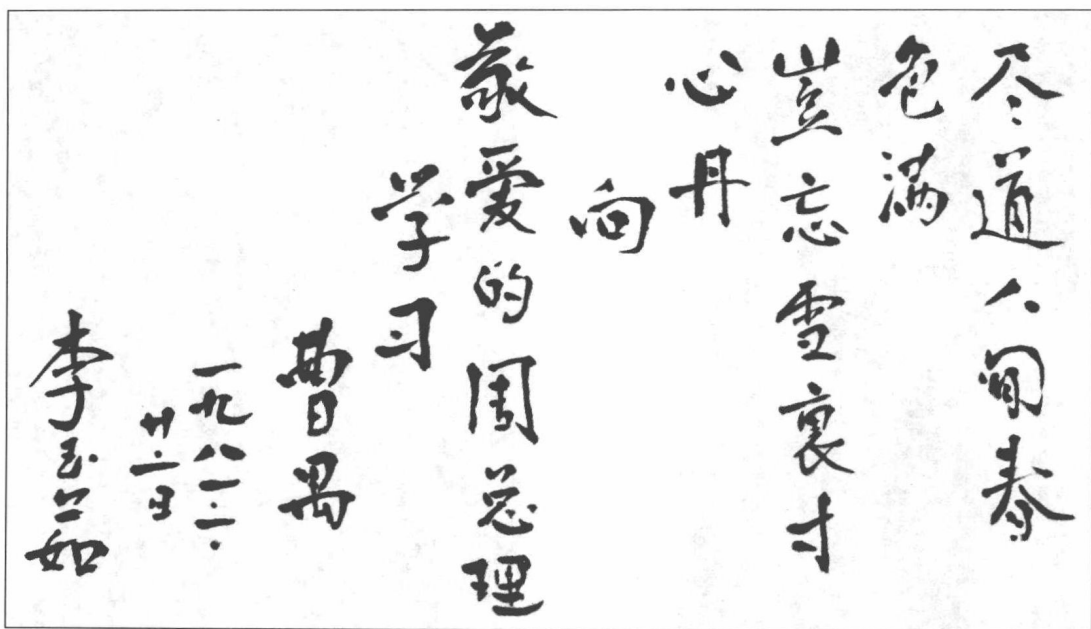 尽道人间春
色满
豈忘雪裏寸
心丹
向
敬爱的周总理
学习
曹禺
一九八一·二·
廿一日
李玉茹